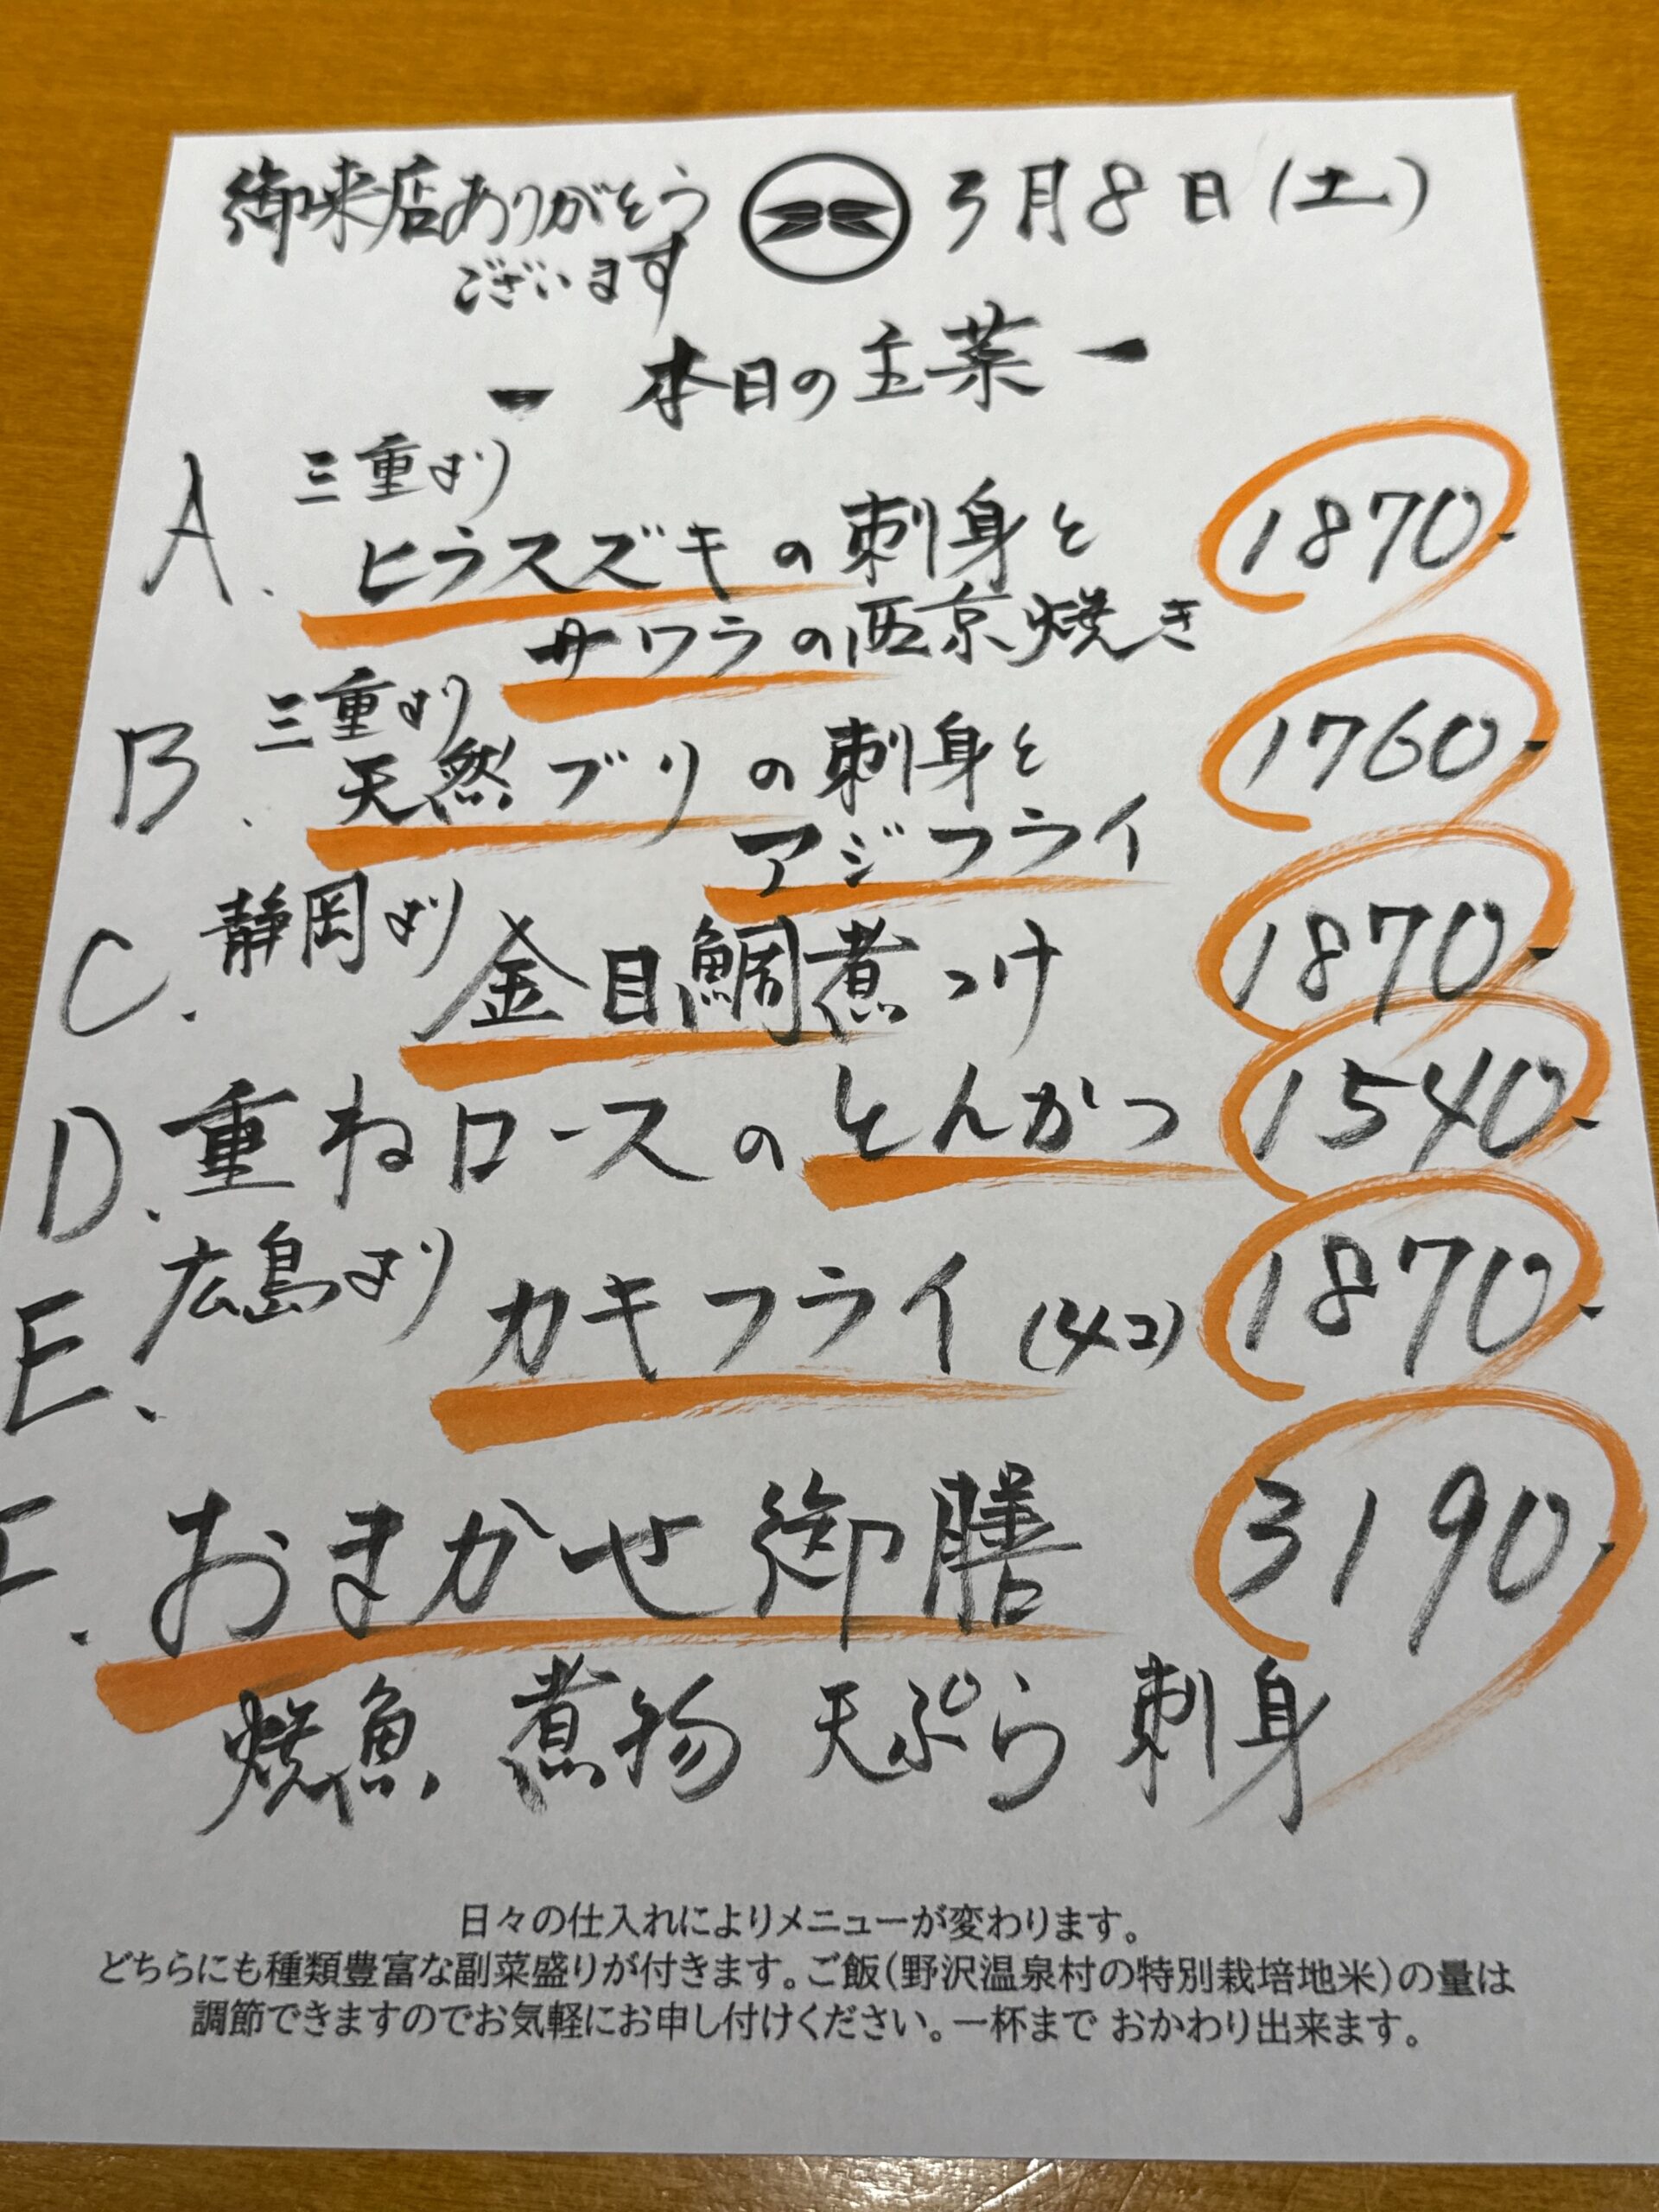 御来店ありがとう
ございます
3月8日(土)
ー 本日の主菜 ー
A. 三重より
ヒラスズキの刺身と
サワラの西京焼き
1870-
B. 三重より
天然ブリの刺身と
アジフライ
1760-
C. 静岡より
金目鯛煮つけ
1870-
D. 重ねロースのとんかつ 1540-
E. 広島より
カキフライ(4コ) 1870-
F. おまかせ御膳 3190-
焼魚 煮物 天ぷら 刺身
日々の仕入れによりメニューが変わります。
どちらにも種類豊富な副菜盛りが付きます。ご飯(野沢温泉村の特別栽培地米)の量は
調節できますのでお気軽にお申し付けください。一杯まで おかわり出来ます。